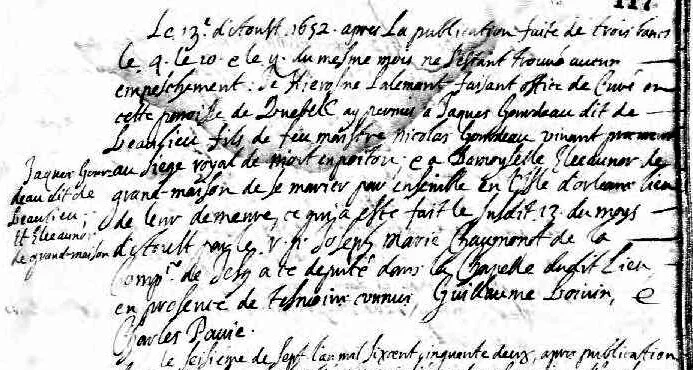 117
Le 13e. d'Aoust. 1652. apres La publication faite de trois bancs
le 4. le 10. e le 11. du mesme mois ne s'estant trouvé aucun
empeschement: Je Hierosme Lalemant faisant office de Curé en
cette parroisse de Quebec ay permis à Jaques Gourdeau dit de
beaulieu fils de feu maistre Nicolas Gourdeau vivant
au siege royal de niort en poitou; e a Damoyselle Eleaunor de
grand-maison de se marier par ensemble en l'Isle d'orleans lieu
de leur demeure, ce qui a esté fait le susdit 13. du moys
d'Aoust par le r. p. Joseph Marie Chaumonot de la
Comp. de Jesu a ce deputé dans la Chapelle dudit Lieu,
en presence de tesmoins connus, Guillaume boivin, e
Charles Pavie.
Jaques Gour-
deau dit de
beaulieu;
Et Eleaunor
de grand-maison
le seisieme de Sept l'an mil sixcent cinquante deux, apres publication